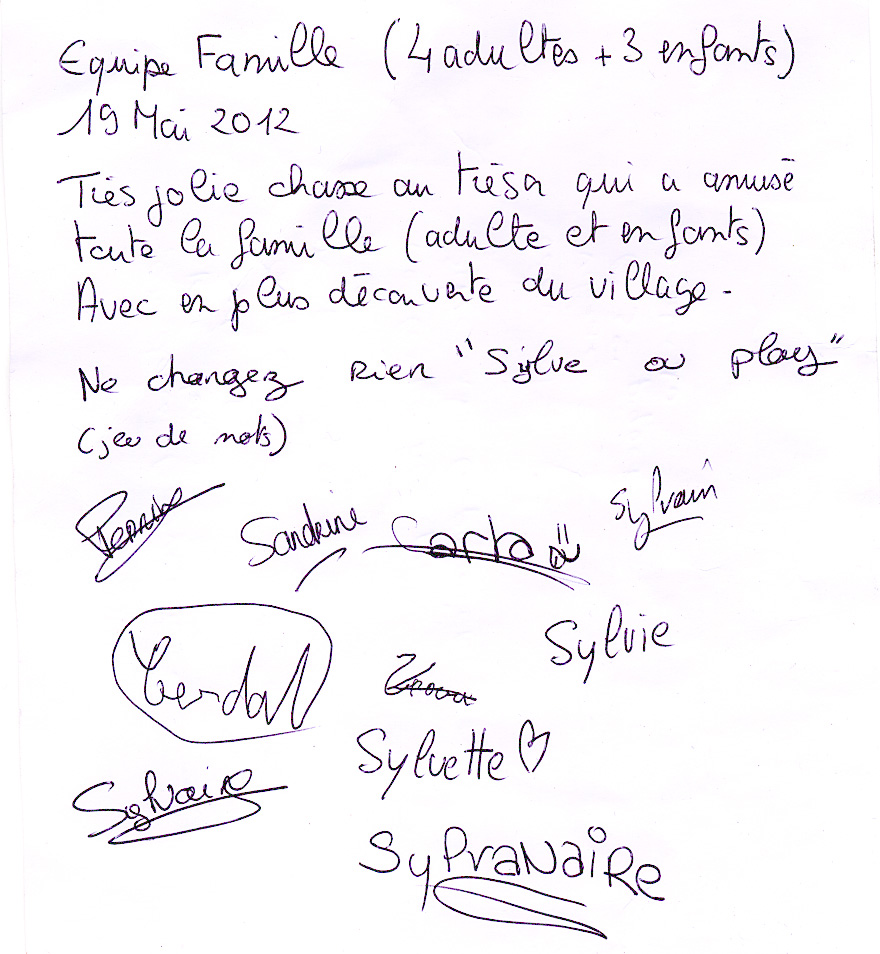 Equipe Famille (4 adultes + 3 enfants)
19 Mai 2012
Très jolie chasse au trésor qui a amusé
toute la famille (adulte et enfants)
Avec en plus découverte du village -
Ne changez rien "Sylve ou play"
(jeu de mots)
Sandrine Carla Sylvain
Sylvie
Sylvette ♡
Sylvaire
SylvaNaiRe